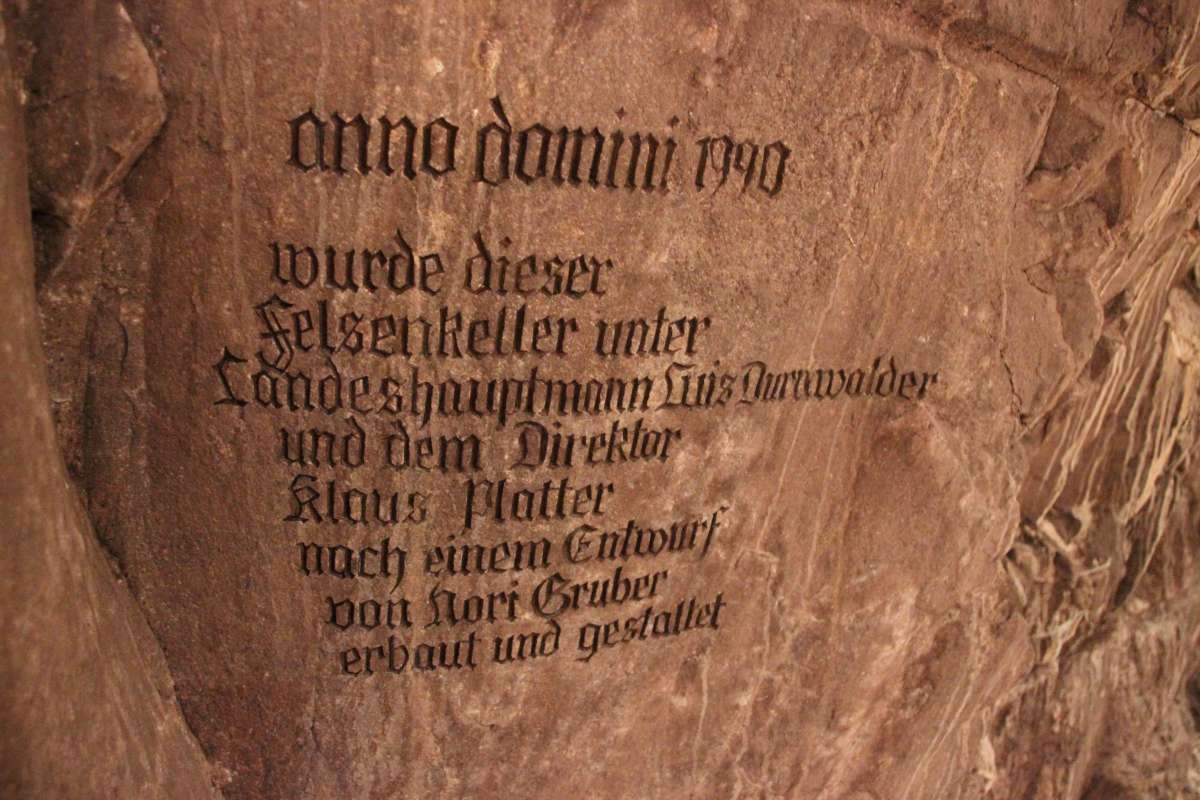 anno domini 1990
wurde dieser
Felsenkeller unter
Landeshauptmann Luis Durnwalder
und dem Direktor
Klaus Platter
nach einem Entwurf
von Nori Gruber
erbaut und gestaltet